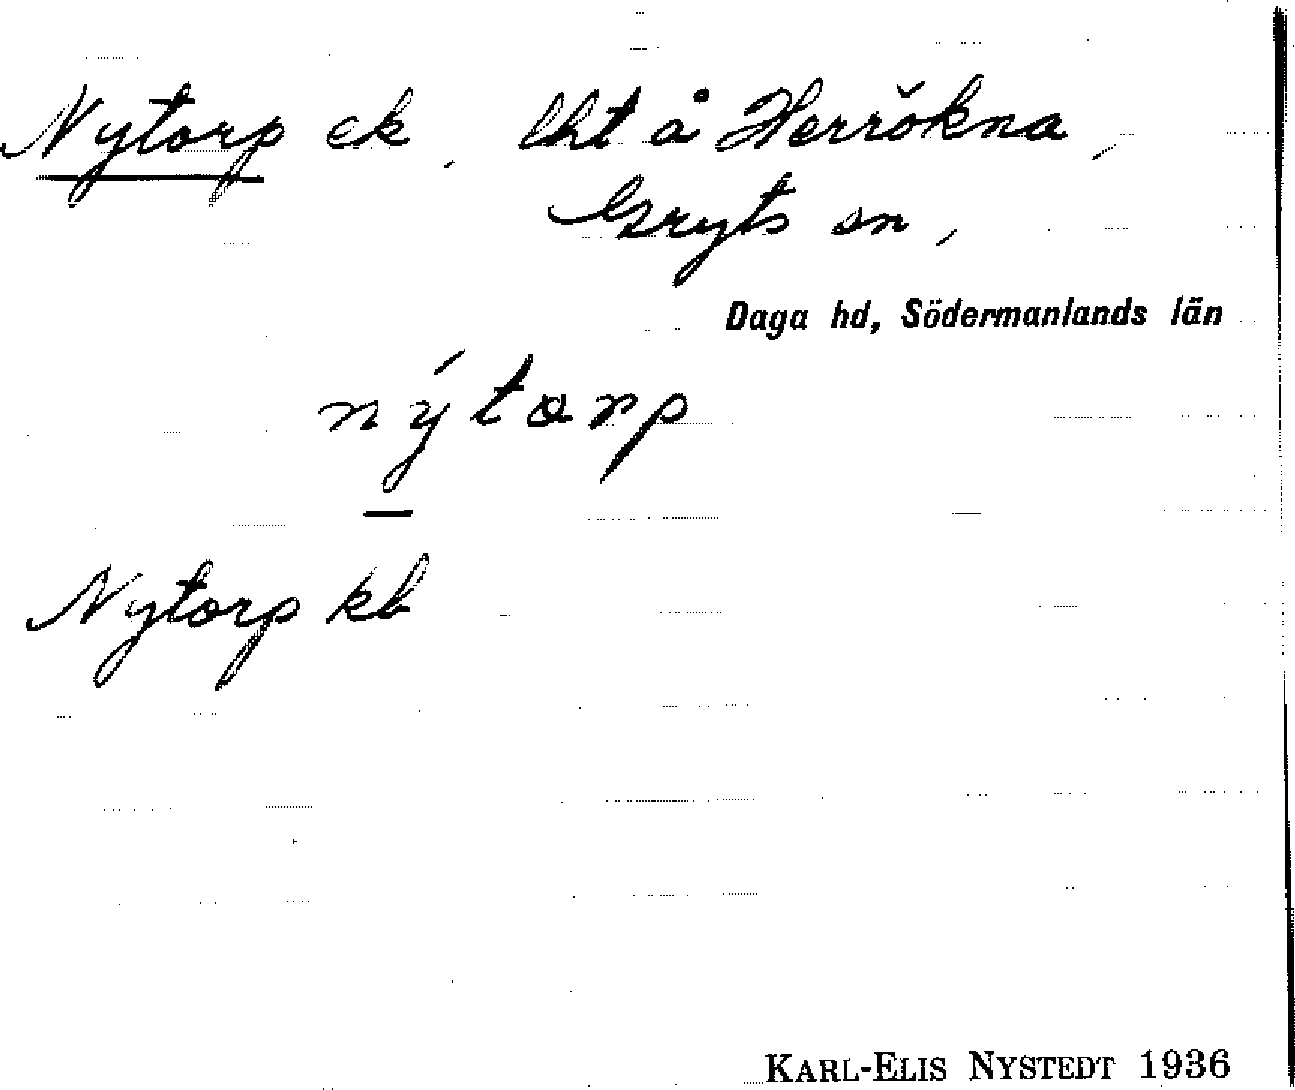 Nytorp ek, lht å Herrökna,
Gryts sn,
Daga hd, Södermanlands län
nýtorp
Nytorp kb
KARL-ELIS NYSTEDT 1936